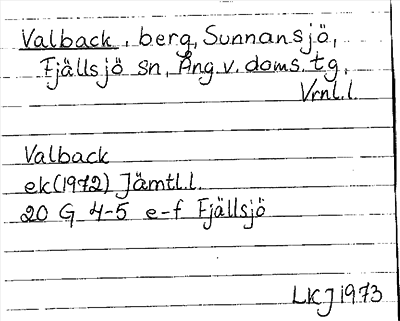 Valback, berg, Sunnansjö,
Fjällsjö sn, Ång.v.doms.tg.
Vrnl.l.
Valback
ek(1972) Jämtl.l.
20 G 4-5 e-f Fjällsjö
LKJ 1973